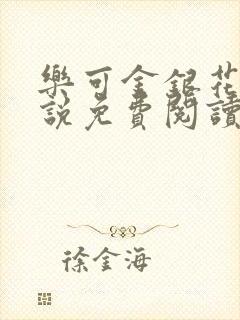 樂可金銀花
說免費閱讀
徐金海